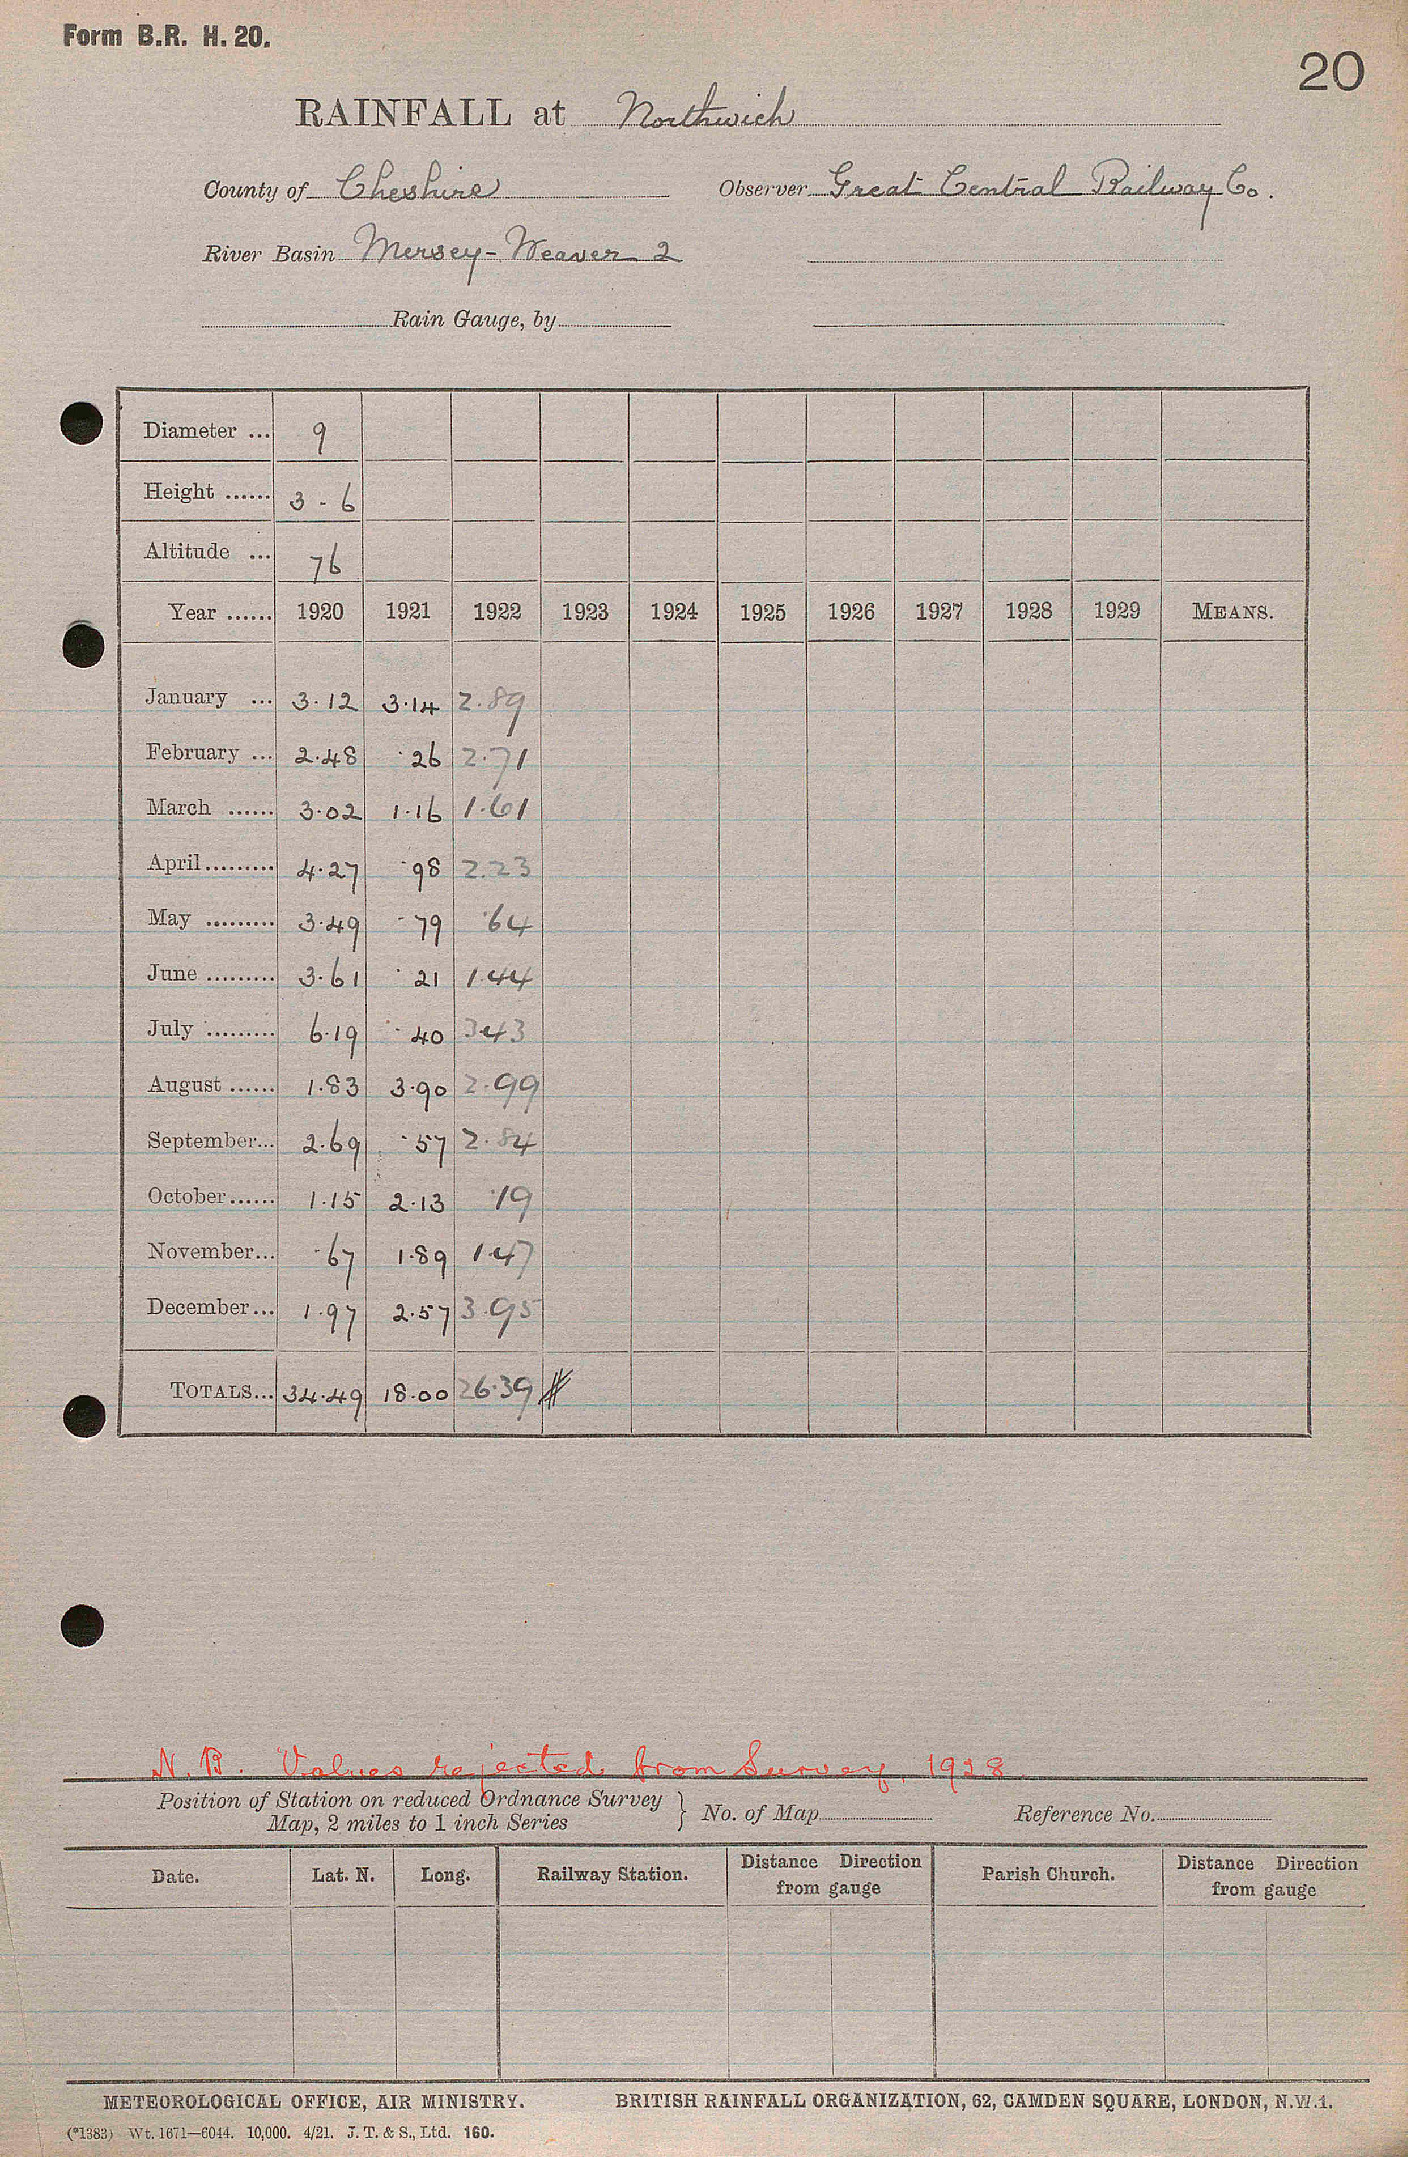 Form B.R. H. 20.
20
RAINFALL at Northwich
County of Cheshire Observer Great Central Railway Co.
River Basin Mersey-Weaver 2
Rain Gauge, by
Diameter ... 9
Height ...... 3 - 6
Altitude ... 76
Year ...... 1920 1921 1922 1923 1924 1925 1926 1927 1928 1929 MEANS.
January ... 3.12 3.14 2.89
February ... 2.48 .26 2.71
March ...... 3.02 1.16 1.61
April......... 4.27 .98 2.23
May ......... 3.49 .79 .64
June ......... 3.61 .21 1.44
July ......... 6.19 .40 3.43
August ...... 1.83 3.90 2.99
September... 2.69 .57 2.84
October...... 1.15 2.13 .19
November... .67 1.89 1.47
December... 1.97 2.57 3.95
TOTALS... 34.49 18.00 26.39 #
N.B. Values rejected from Survey, 1928.
Position of Station on reduced Ordnance Survey
Map, 2 miles to 1 inch Series } No. of Map Reference No.
Date. Lat. N. Long. Railway Station. Distance Direction from gauge Parish Church. Distance Direction from gauge
METEOROLOGICAL OFFICE, AIR MINISTRY. BRITISH RAINFALL ORGANIZATION, 62, CAMDEN SQUARE, LONDON, N.W.1.
(*1383) Wt. 1671—6044. 10,000. 4/21. J. T. & S., Ltd. 160.